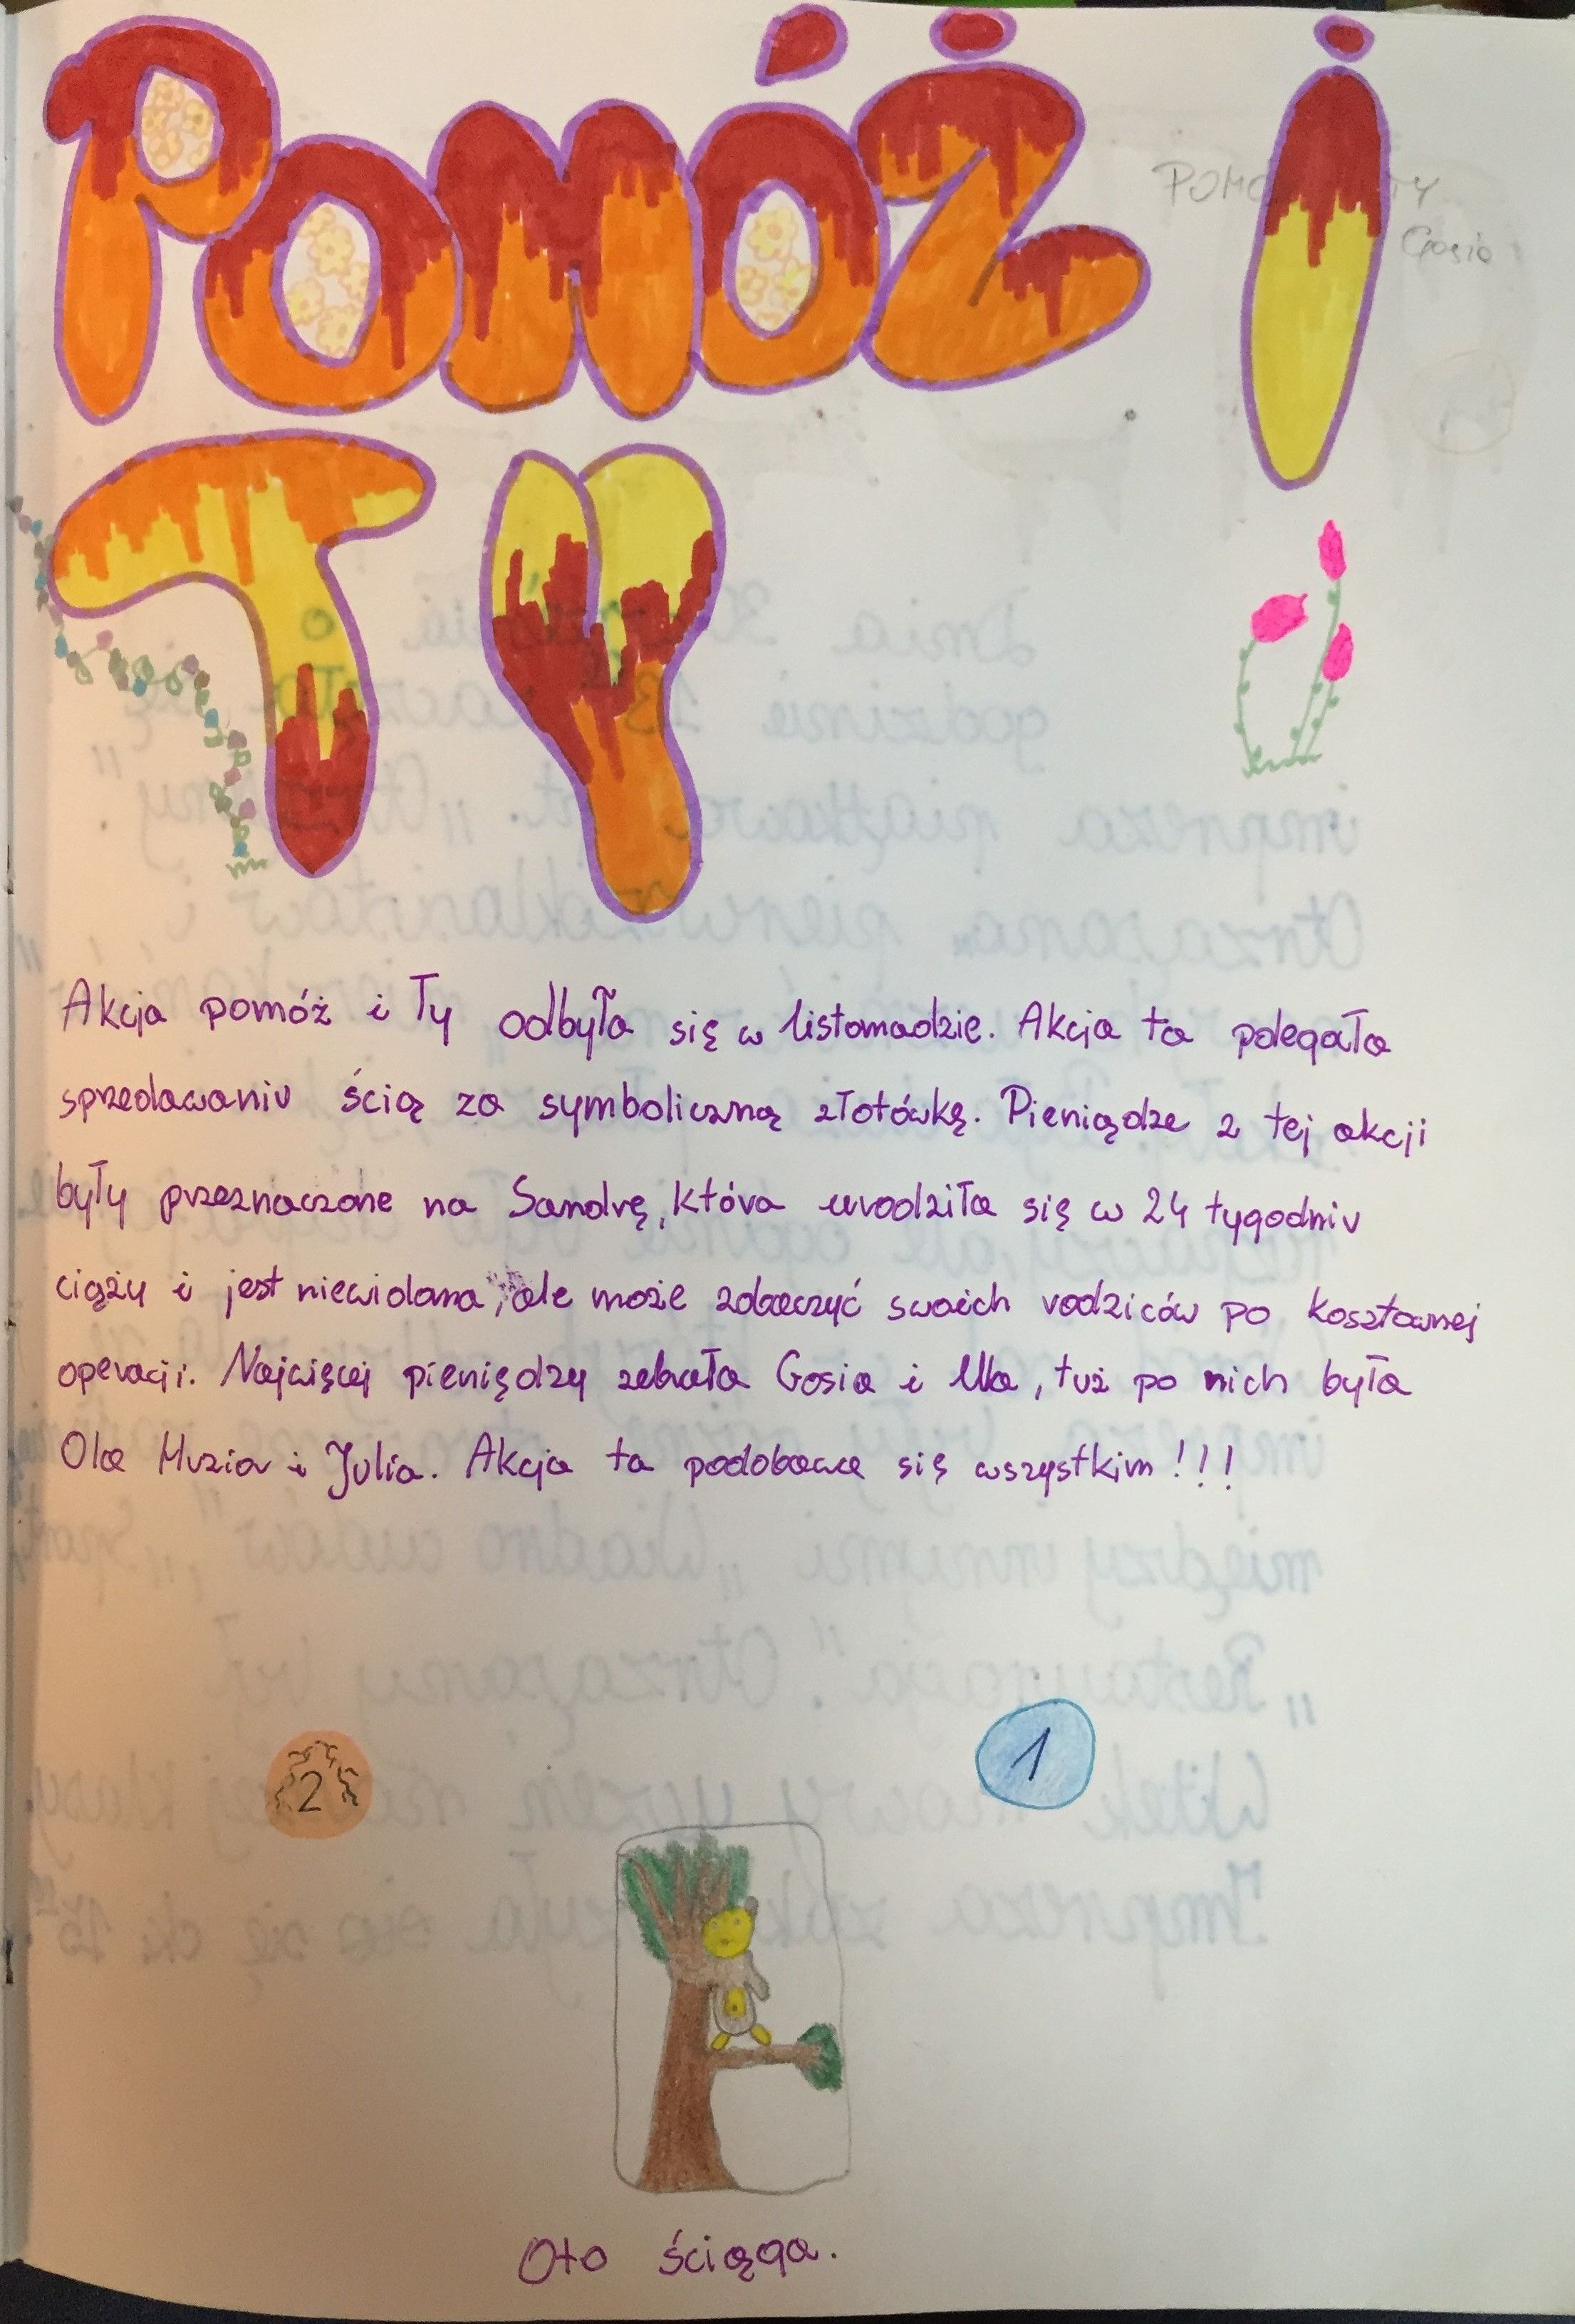 POMÓŻ I
TY
Akcja pomóż i Ty odbyła się w listomadzie. Akcja ta polegała
sprzedawaniu ściąg za symboliczną złotówkę. Pieniądze z tej akcji
były przeznaczone na Sandrę, która urodziła się w 24 tygodniu
ciąży i jest niewidoma, ale może zobaczyć swoich rodziców po kosztownej
operacji. Najwięcej pieniędzy zebrała Gosia i Ula, tuż po nich była
Ola Muzia i Julia. Akcja ta podobała się wszystkim!!!
2
1
Oto ściąga.